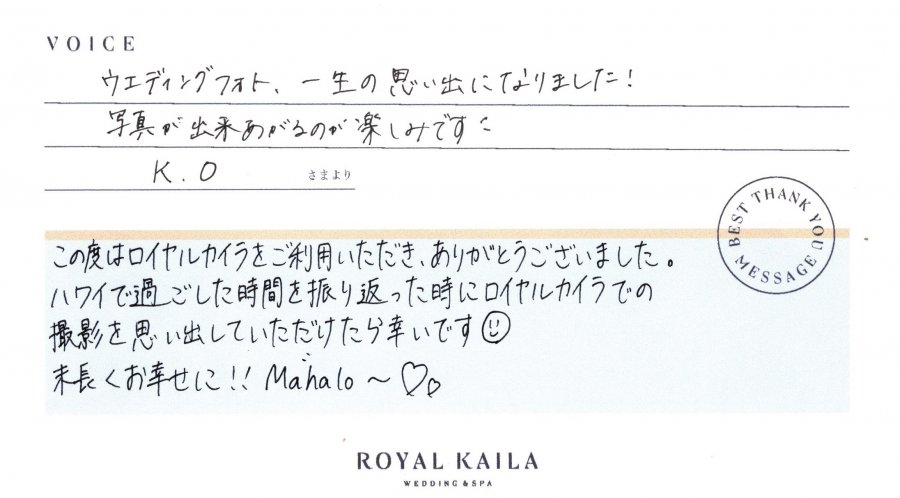 VOICE
ウエディングフォト、一生の思い出になりました！
写真が出来あがるのが楽しみです
K.O さまより
BEST THANK YOU MESSAGE
この度はロイヤルカイラをご利用いただき、ありがとうございました。
ハワイで過ごした時間を振り返った時にロイヤルカイラでの
撮影を思い出していただけたら幸いです
末長くお幸せに!! Mahalo～♡♡
ROYAL KAILA
WEDDING & SPA